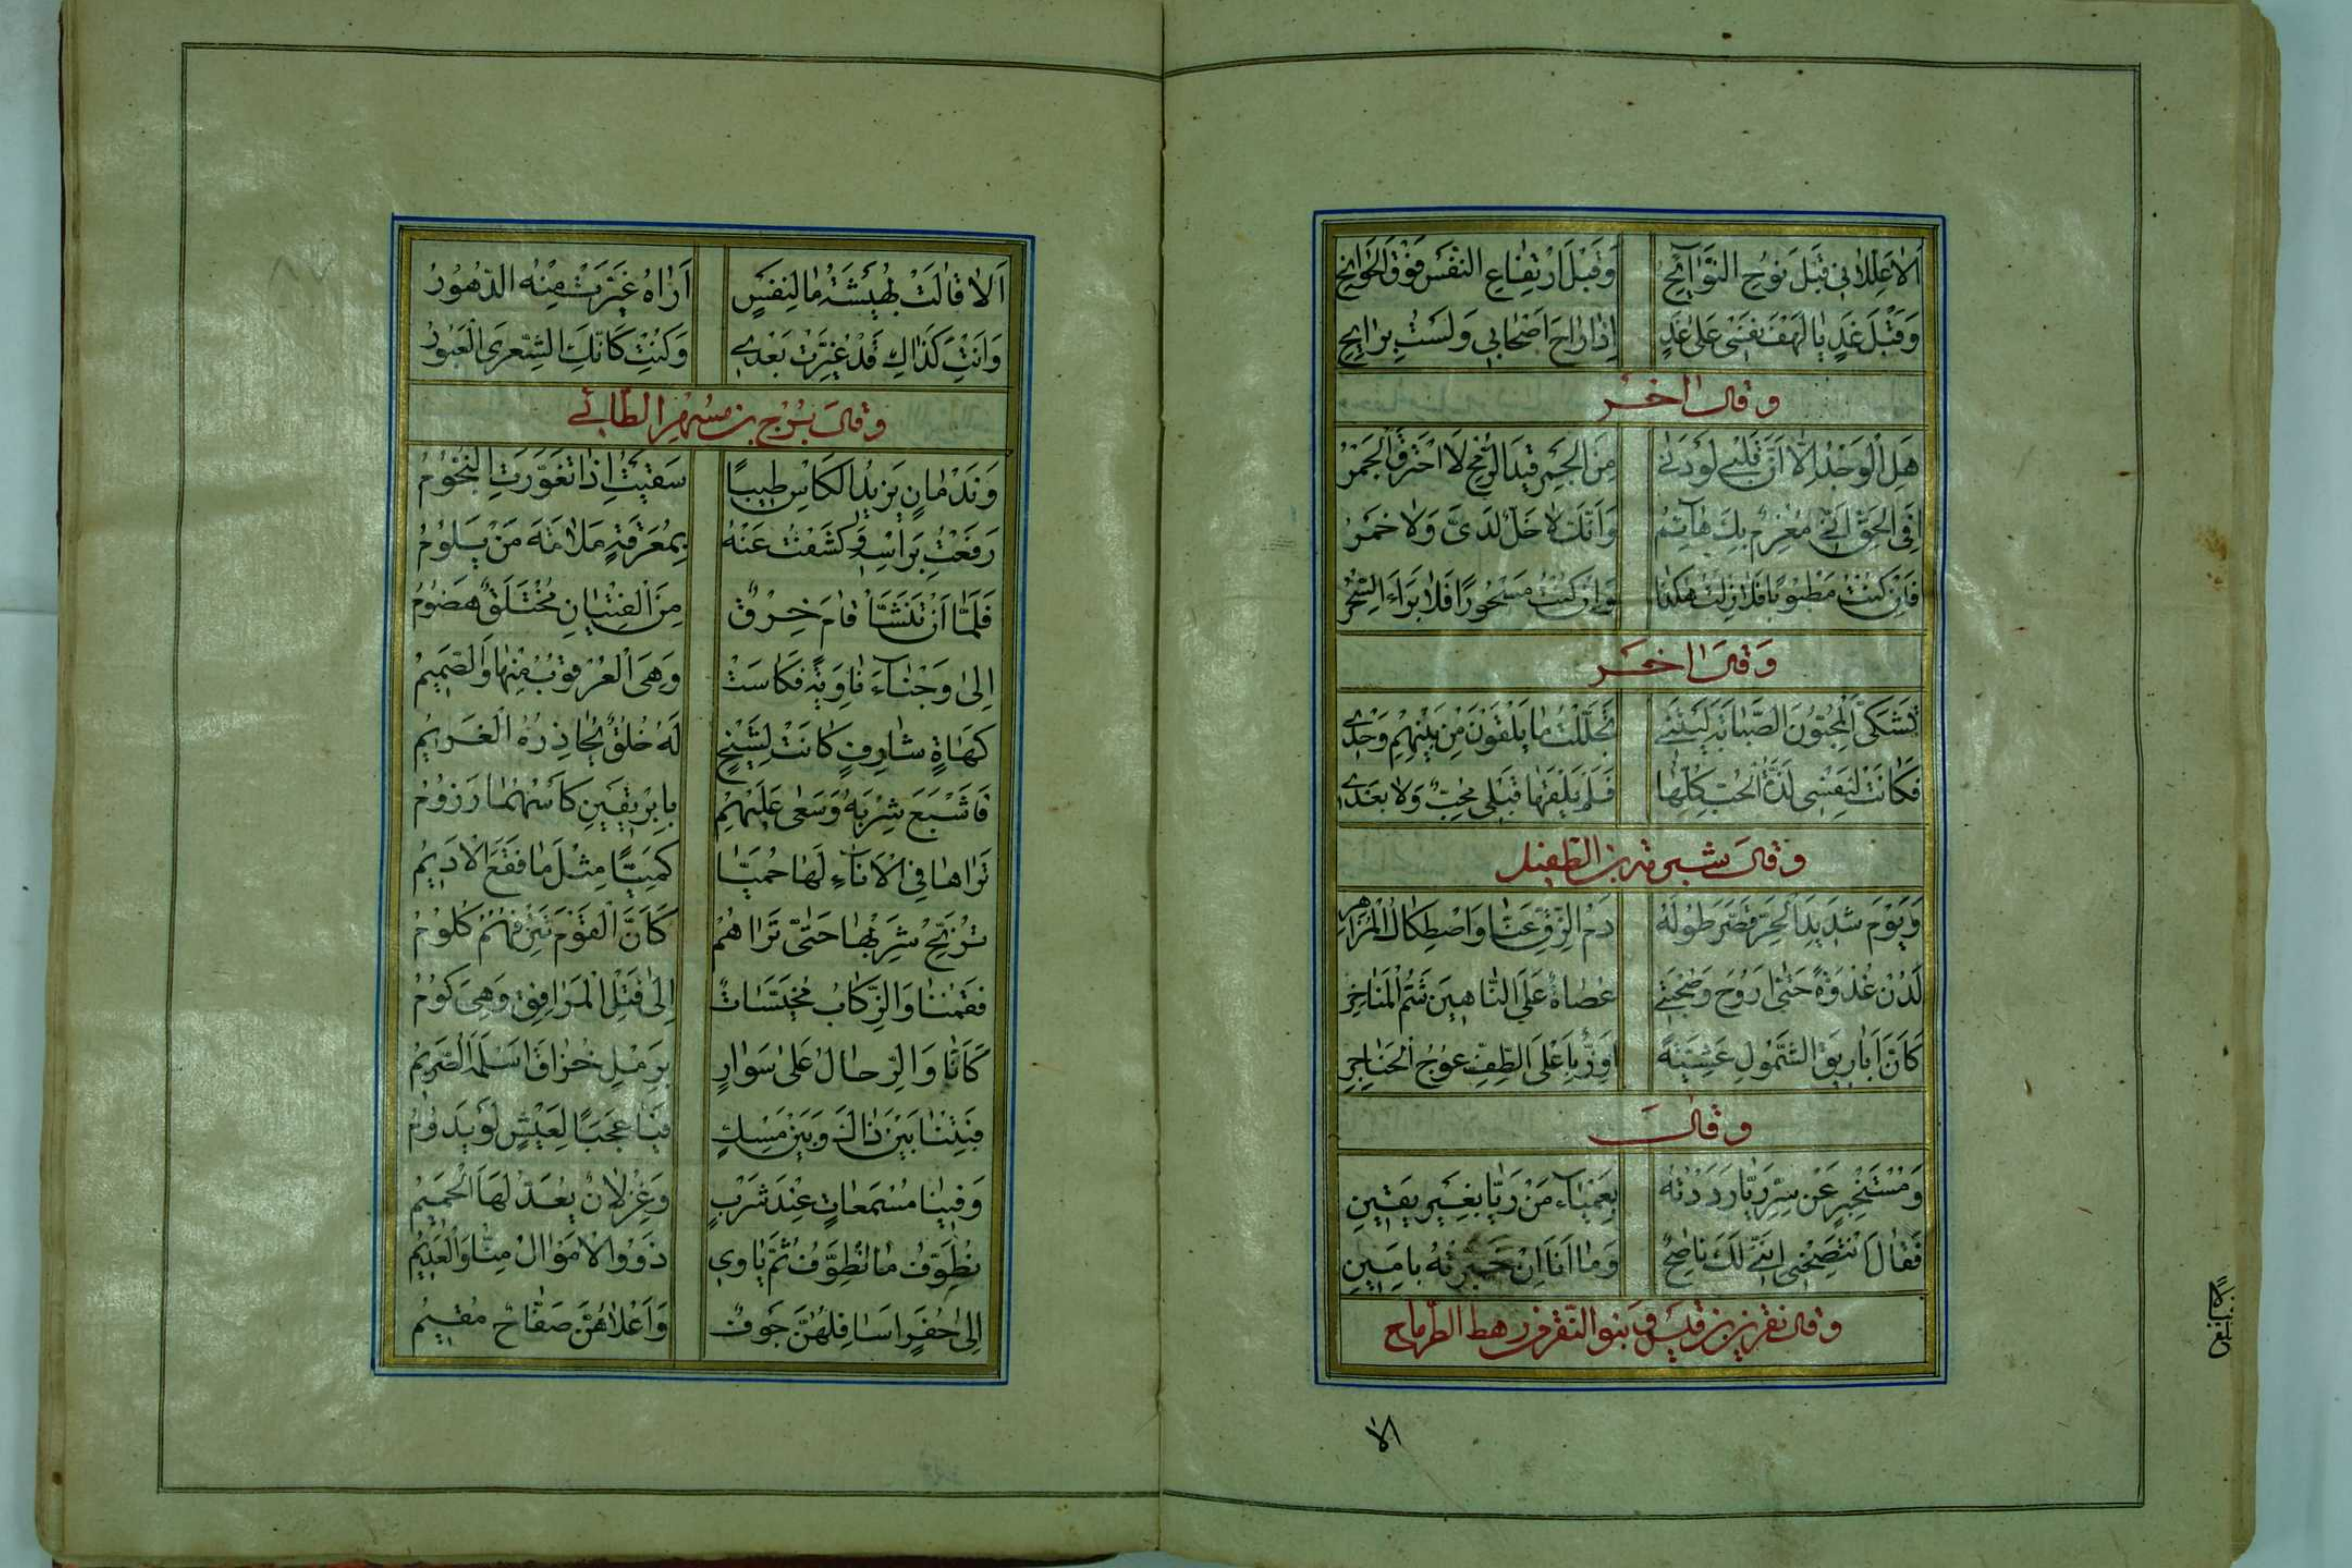 اَلاٰ عَلِّلاٰنِی قَبْلَ نَوْحِ النَّوٰٓائِحِ وَقَبْلَ اَرْتِقٰاعِ النَّفْسِ فَوْقَ الْجَوٰانِحِ
وَقَبْلَ غَدٍ یٰا لَهْفَ نَفْسٰی عَلیٰ غَدٍ اِذٰا رٰاحَ اَصْحٰابِی وَلَسْتُ بِرٰایِحِ
وَ قٰالَ اٰخَر
هَلِ الْوَجْدُ اِلّٰا اَنَّ قَلْبِی لَوْ دَنٰی مِنَ الْجَمْرِ قِیدَ الرُّمْحِ لَا احْتَرَقَ الْجَمْرُ
اَفِی الْحَقِّ اَنِّی مُغْرَمٌ بِكِ هٰآئِمٌ وَاَنَّكَ لاٰ خَلٌّ لَدَیَّ وَلاٰ خَمْرُ
فَاِنْ كُنْتُ مَطْبُوبًا فَلاٰ زِلْتُ هٰكَذٰا وَاِنْ كُنْتُ مَسْحُورًا فَلاٰ بَرَاءَ السِّحْرُ
وَ قٰالَ اٰخَر
تَشَكَّی الْمُحِبُّونَ الصَّبٰابَةَ لَیْتَنِی تَحَمَّلْتُ مٰا یَلْقَوْنَ مِنْ بَیْنِهِمْ وَحْدِی
فَكٰانَتْ لِنَفْسِی لَذَّةُ الْحُبِّ كُلِّهٰا فَلَمْ یَلْقَهٰا قَبْلِی مُحِبٌّ وَلاٰ بَعْدِی
وَ قٰالَ شبرمة بن الطفیل
وَیَوْمٍ شَدِیدِ الْحَرِّ قَصَّرَ طُولَهُ دَمُ الزِّقِّ عَنّٰا وَاصْطِكٰاكُ الْمَزٰاهِرِ
لَدُنْ غُدْوَةً حَتّٰی اَرُوحَ وَصُحْبَتِی عُصٰاةٌ عَلَی النّٰاهِینَ شُمُّ الْمَنٰاخِرِ
كَاَنَّ اَبٰارِیقَ الشَّمُولِ عَشِیَّةً اِوَزٌّ بِاَعْلَی الطَّفِّ عُوجُ الْحَنٰاجِرِ
وَ قٰالَ
وَمُسْتَخْبِرٍ عَنْ سِرِّ رَیّٰا رَدَدْتُهُ بِعَمْیٰآءَ مِنْ رَیّٰا بِغَیْرِ یَقِینِ
فَقٰالَ اَنْتَصِحْنِی اِنَّنِی لَكَ نٰاصِحٌ وَمٰا اَنَا اِنْ خَبَّرْتُهُ بِاَمِینِ
وقال نفر بن قیس و بنو النفر من رهط الطرماح
الا
اَلاٰ قٰالَتْ بُهَیْشَةُ مٰا لِنَفْسٍ اَرٰاهُ غَیَّرَتْ مِنْهُ الدُّهُورُ
وَاَنْتِ كَذٰاكِ قَدْ غُیِّرْتِ بَعْدِی وَكُنْتِ كَاَنَّكِ الشِّعْرَی الْعَبُورُ
وَ قٰالَ بُرْج بن مُسْهِر الطّٰائی
وَنَدْمٰانٍ یَزِیدُ الْكَاْسَ طِیبًا سَقَیْتُ اِذٰا تَغَوَّرَتِ النُّجُومُ
رَفَعْتُ بِرَاْسِهِ وَكَشَفْتُ عَنْهُ بِمُعْرَقَةٍ مَلاٰمَةَ مَنْ یَلُومُ
فَلَمّٰا اَنْ تَنَشَّاَ قٰامَ خِرْقٌ مِنَ الْفِتْیٰانِ مُخْتَلَقٌ هَضُومُ
اِلیٰ وَجْنٰآءَ نٰاوِیَةٍ فَكٰاسَتْ وَهِیَ الْعُرْقُوبُ مِنْهٰا وَالصَّمِیمُ
كَهٰاةٍ شٰارِفٍ كٰانَتْ لِشَیْخٍ لَهُ خُلُقٌ یُحٰاذِرُهُ الْغَرِیمُ
فَاَشْبَعَ شِرْبَهُ وَسَعٰی عَلَیْهِمْ بِاِبْرِیقَیْنِ كَاْسُهُمٰا رَزُومُ
تَرٰاهٰا فِی الْاَنٰآءِ لَهٰا حُمَیّٰا كُمَیْتًا مِثْلَ مٰا فَقَعَ الْاَدِیمُ
تُرَنِّحُ شَرْبَهٰا حَتّٰی تَرٰاهُمْ كَاَنَّ الْقَوْمَ تَنْزِفُهُمْ كُلُومُ
فَقُمْنٰا وَالرِّكٰابُ مُخَیَّسٰاتٌ اِلیٰ فُتْلِ الْمَرٰافِقِ وَهِیَ كُومُ
كَاَنّٰا وَالرِّحٰالُ عَلیٰ سَوٰارٍ بِرَمْلِ خُزٰاقَ اَسْلَمَهَ الصَّرِیمُ
فَبِتْنٰا بَیْنَ ذٰاكَ وَبَیْنَ مِسْكٍ فَیٰا عَجَبًا لِعَیْشٍ لَوْ یَدُومُ
وَفِینٰا مُسْمِعٰاتٌ عِنْدَ شَرْبٍ وَغِزْلاٰنٌ یُعَدُّ لَهَا الْحَمِیمُ
نُطَوِّفُ مٰا نُطَوِّفُ ثُمَّ یٰاوِی ذَوُوا الْاَمْوٰالِ مِنّٰا وَالْعَدِیمُ
اِلیٰ حُفَرٍ اَسٰافِلُهُنَّ جُوفٌ وَاَعْلاٰهُنَّ صُفّٰاحٌ مُقِیمُ